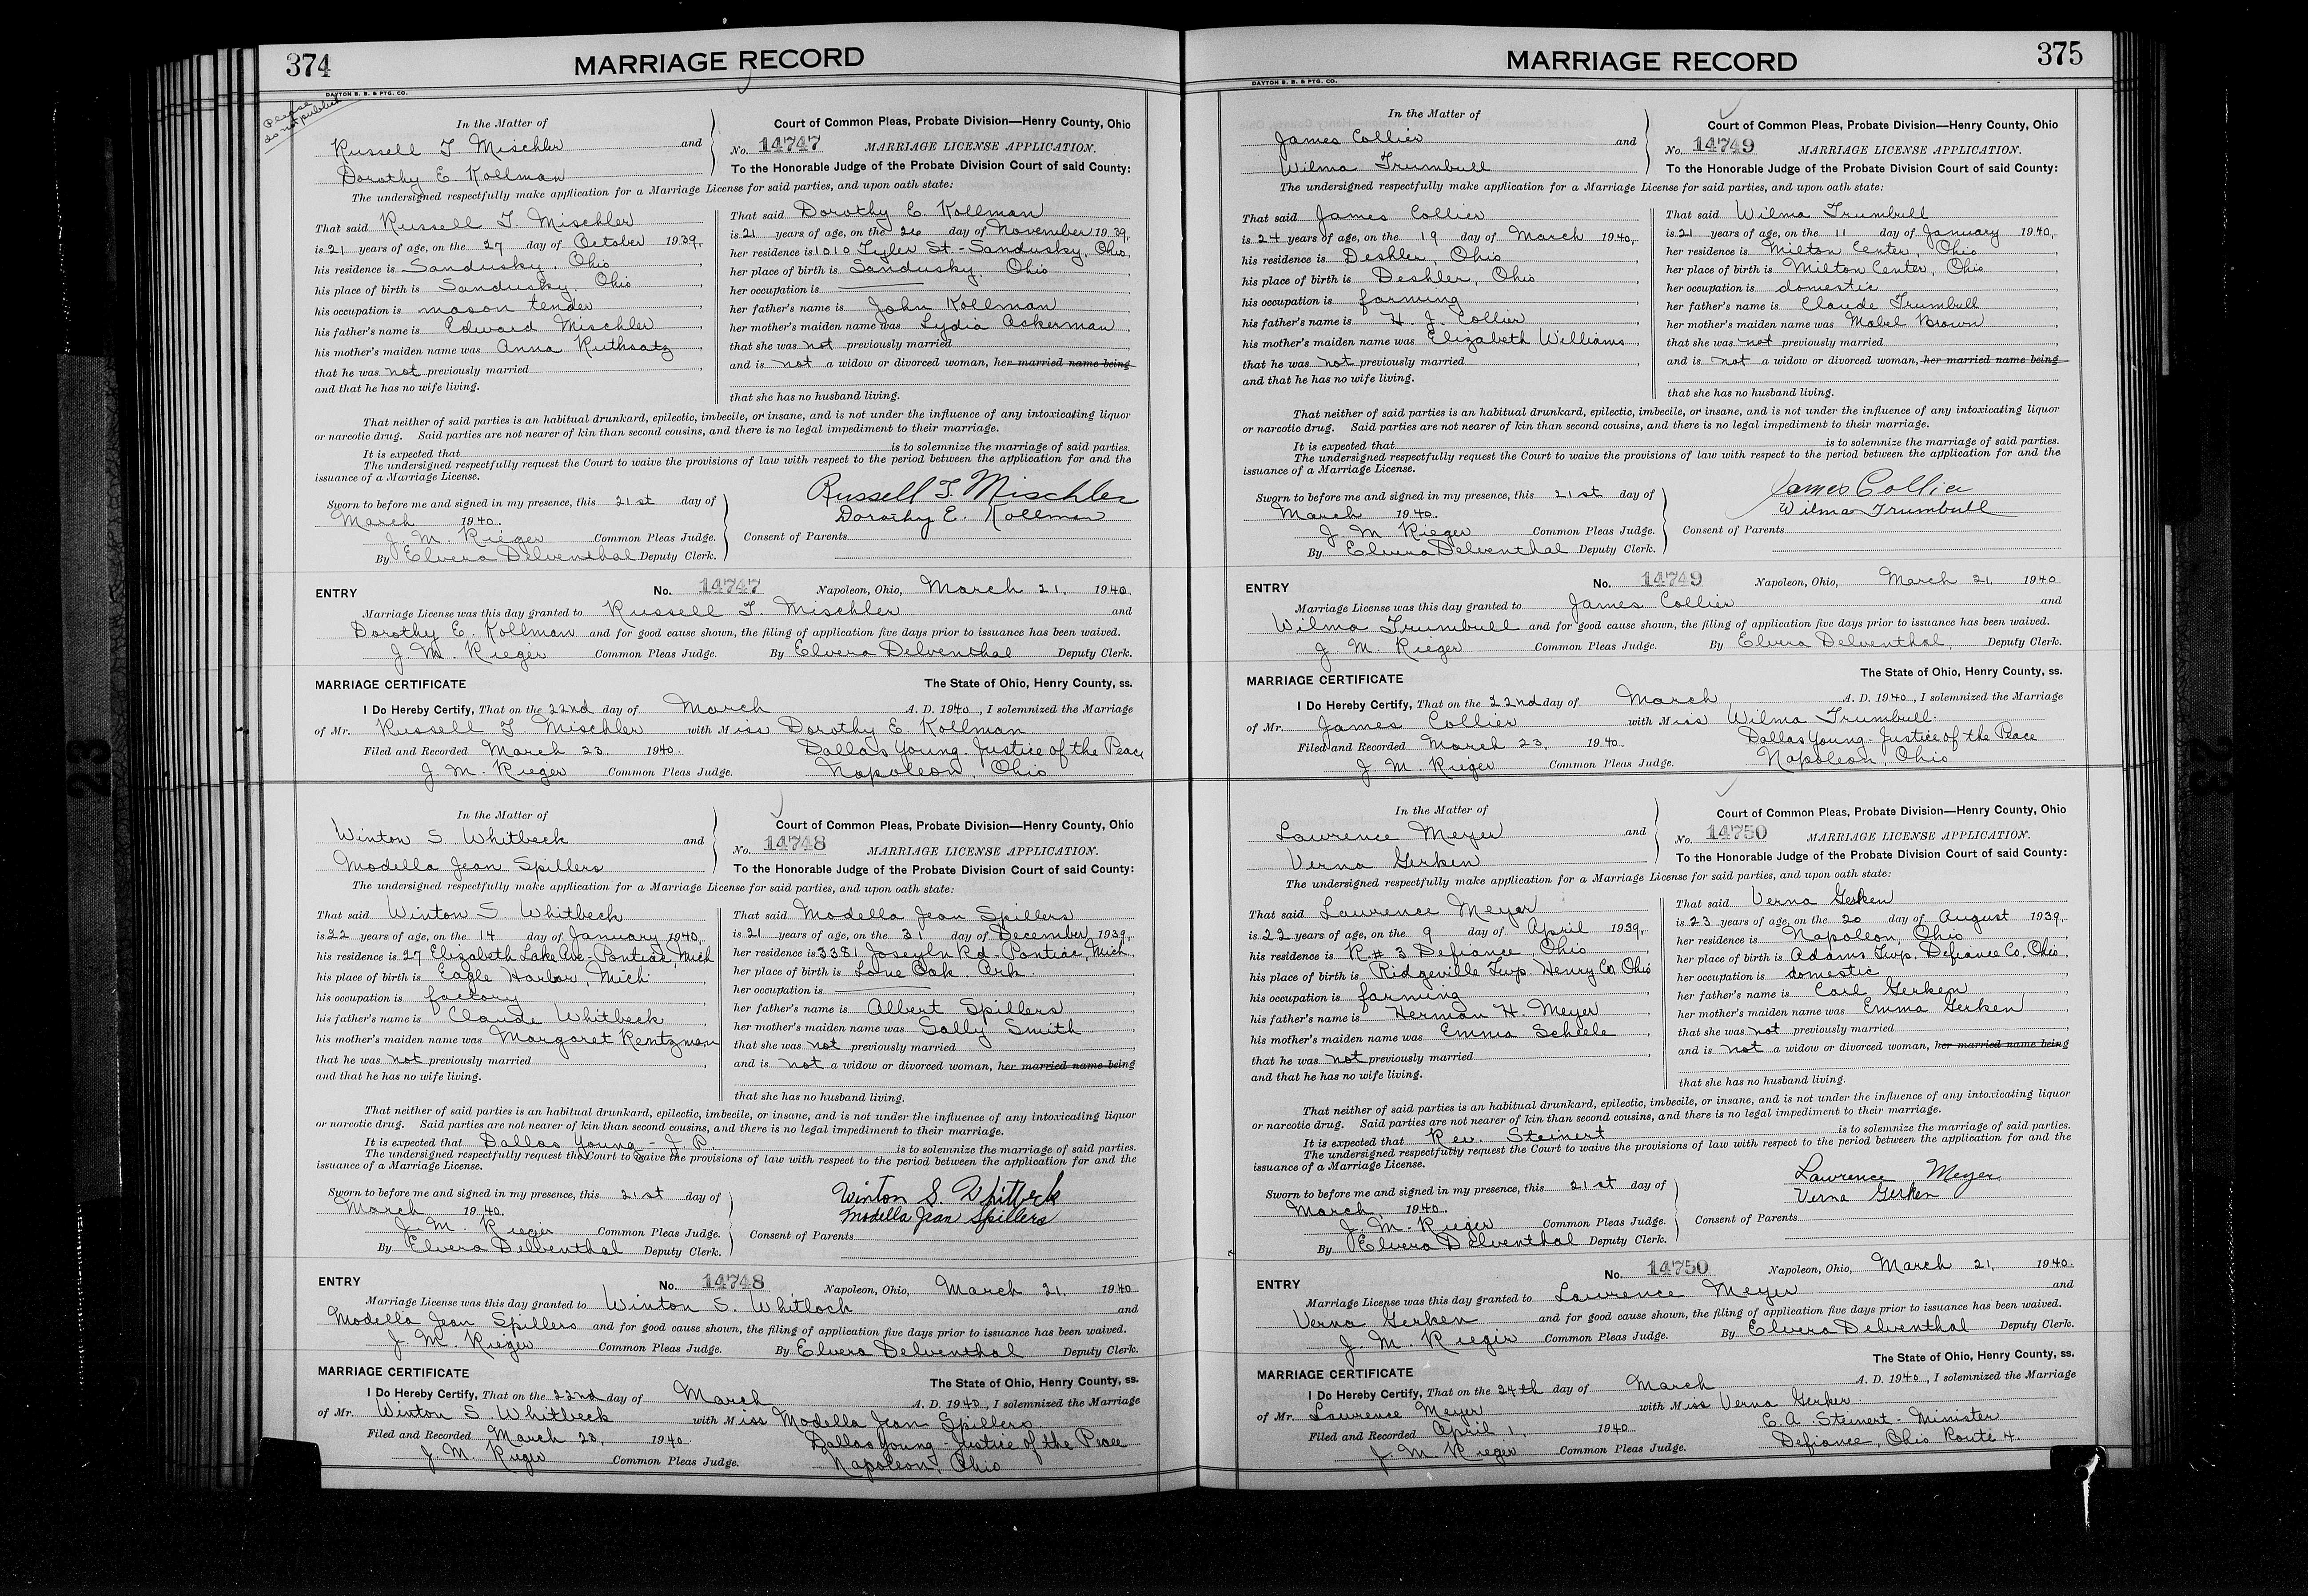 374
MARRIAGE RECORD
DAYTON B. B. & PTG. CO.
Please
do not publish
In the Matter of
Russell T. Mischler and
Dorothy E. Kollman
Court of Common Pleas, Probate Division—Henry County, Ohio
No. 14747 MARRIAGE LICENSE APPLICATION.
To the Honorable Judge of the Probate Division Court of said County:
The undersigned respectfully make application for a Marriage License for said parties, and upon oath state:
That said Russell T. Mischler
is 21 years of age, on the 27 day of October 1939,
his residence is Sandusky, Ohio,
his place of birth is Sandusky, Ohio,
his occupation is mason tender,
his father's name is Edward Mischler,
his mother's maiden name was Anna Ruthsatz,
that he was not previously married,
and that he has no wife living.
That said Dorothy E. Kollman
is 21 years of age, on the 26 day of November 1939,
her residence is 1010 Tyler St - Sandusky, Ohio,
her place of birth is Sandusky, Ohio,
her occupation is
her father's name is John Kollman,
her mother's maiden name was Lydia Ackerman,
that she was not previously married,
and is not a widow or divorced woman, her married name being
that she has no husband living.
That neither of said parties is an habitual drunkard, epilectic, imbecile, or insane, and is not under the influence of any intoxicating liquor
or narcotic drug. Said parties are not nearer of kin than second cousins, and there is no legal impediment to their marriage.
It is expected that is to solemnize the marriage of said parties.
The undersigned respectfully request the Court to waive the provisions of law with respect to the period between the application for and the
issuance of a Marriage License.
Sworn to before me and signed in my presence, this 21st day of
March 1940.
J. M. Rieger Common Pleas Judge.
By Elvera Delventhal Deputy Clerk.
Russell T. Mischler
Dorothy E. Kollman
Consent of Parents
ENTRY No. 14747 Napoleon, Ohio, March 21, 1940.
Marriage License was this day granted to Russell T. Mischler and
Dorothy E. Kollman and for good cause shown, the filing of application five days prior to issuance has been waived.
J. M. Rieger Common Pleas Judge. By Elvera Delventhal Deputy Clerk.
MARRIAGE CERTIFICATE The State of Ohio, Henry County, ss.
I Do Hereby Certify, That on the 22nd day of March A. D. 1940, I solemnized the Marriage
of Mr. Russell T. Mischler with Miss Dorothy E. Kollman
Filed and Recorded March 23, 1940. Dallas Young - Justice of the Peace
J. M. Rieger Common Pleas Judge. Napoleon, Ohio
In the Matter of
Winton S. Whitbeck and
Modella Jean Spillers
Court of Common Pleas, Probate Division—Henry County, Ohio
No. 14748 MARRIAGE LICENSE APPLICATION.
To the Honorable Judge of the Probate Division Court of said County:
The undersigned respectfully make application for a Marriage License for said parties, and upon oath state:
That said Winton S. Whitbeck
is 22 years of age, on the 14 day of January 1940,
his residence is 27 Elizabeth Lake Ave - Pontiac, Mich
his place of birth is Eagle Harbor, Mich.,
his occupation is factory,
his father's name is Claude Whitbeck,
his mother's maiden name was Margaret Rentzman
that he was not previously married,
and that he has no wife living.
That said Modella Jean Spillers
is 21 years of age, on the 31 day of December 1939,
her residence is 3381 Joseyln Rd - Pontiac, Mich.,
her place of birth is Lone Oak Ark.,
her occupation is
her father's name is Albert Spillers,
her mother's maiden name was Sally Smith,
that she was not previously married,
and is not a widow or divorced woman, her married name being
that she has no husband living.
That neither of said parties is an habitual drunkard, epilectic, imbecile, or insane, and is not under the influence of any intoxicating liquor
or narcotic drug. Said parties are not nearer of kin than second cousins, and there is no legal impediment to their marriage.
It is expected that Dallas Young - J. P. is to solemnize the marriage of said parties.
The undersigned respectfully request the Court to waive the provisions of law with respect to the period between the application for and the
issuance of a Marriage License.
Sworn to before me and signed in my presence, this 21st day of
March 1940.
J. M. Rieger Common Pleas Judge.
By Elvera Delventhal Deputy Clerk.
Winton S. Whitbeck
Modella Jean Spillers
Consent of Parents
ENTRY No. 14748 Napoleon, Ohio, March 21, 1940
Marriage License was this day granted to Winton S. Whitlock and
Modella Jean Spillers and for good cause shown, the filing of application five days prior to issuance has been waived.
J. M. Rieger Common Pleas Judge. By Elvera Delventhal Deputy Clerk.
MARRIAGE CERTIFICATE The State of Ohio, Henry County, ss.
I Do Hereby Certify, That on the 22nd day of March A. D. 1940, I solemnized the Marriage
of Mr. Winton S. Whitbeck with Miss Modella Jean Spillers.
Filed and Recorded March 23, 1940 Dallas Young - Justice of the Peace
J. M. Rieger Common Pleas Judge. Napoleon, Ohio
MARRIAGE RECORD
375
DAYTON B. B. & PTG. CO.
In the Matter of
James Collier and
Wilma Trumbull
Court of Common Pleas, Probate Division—Henry County, Ohio
No. 14749 MARRIAGE LICENSE APPLICATION.
To the Honorable Judge of the Probate Division Court of said County:
The undersigned respectfully make application for a Marriage License for said parties, and upon oath state:
That said James Collier
is 24 years of age, on the 19 day of March 1940,
his residence is Deshler, Ohio,
his place of birth is Deshler, Ohio,
his occupation is farming,
his father's name is H. J. Collier,
his mother's maiden name was Elizabeth Williams,
that he was not previously married,
and that he has no wife living.
That said Wilma Trumbull
is 21 years of age, on the 11 day of January 1940,
her residence is Milton Center, Ohio,
her place of birth is Milton Center, Ohio,
her occupation is domestic,
her father's name is Claude Trumbull,
her mother's maiden name was Mabel Brown,
that she was not previously married,
and is not a widow or divorced woman, her married name being
that she has no husband living.
That neither of said parties is an habitual drunkard, epilectic, imbecile, or insane, and is not under the influence of any intoxicating liquor
or narcotic drug. Said parties are not nearer of kin than second cousins, and there is no legal impediment to their marriage.
It is expected that is to solemnize the marriage of said parties.
The undersigned respectfully request the Court to waive the provisions of law with respect to the period between the application for and the
issuance of a Marriage License.
Sworn to before me and signed in my presence, this 21st day of
March 1940.
J. M. Rieger Common Pleas Judge.
By Elvera Delventhal Deputy Clerk.
James Collier
Wilma Trumbull
Consent of Parents
ENTRY No. 14749 Napoleon, Ohio, March 21, 1940
Marriage License was this day granted to James Collier and
Wilma Trumbull and for good cause shown, the filing of application five days prior to issuance has been waived.
J. M. Rieger Common Pleas Judge. By Elvera Delventhal, Deputy Clerk.
MARRIAGE CERTIFICATE The State of Ohio, Henry County, ss.
I Do Hereby Certify, That on the 22nd day of March A. D. 1940, I solemnized the Marriage
of Mr. James Collier with Miss Wilma Trumbull.
Filed and Recorded March 23, 1940. Dallas Young - Justice of the Peace
J. M. Rieger Common Pleas Judge. Napoleon, Ohio
In the Matter of
Lawrence Meyer and
Verna Gerken
Court of Common Pleas, Probate Division—Henry County, Ohio
No. 14750 MARRIAGE LICENSE APPLICATION.
To the Honorable Judge of the Probate Division Court of said County:
The undersigned respectfully make application for a Marriage License for said parties, and upon oath state:
That said Lawrence Meyer
is 22 years of age, on the 9 day of April 1939,
his residence is R. # 3 Defiance Ohio,
his place of birth is Ridgeville Twp. Henry Co. Ohio
his occupation is farming,
his father's name is Herman H. Meyer,
his mother's maiden name was Emma Scheele,
that he was not previously married,
and that he has no wife living.
That said Verna Gerken
is 23 years of age, on the 20 day of August 1939,
her residence is Napoleon, Ohio,
her place of birth is Adams Twp. Defiance Co. Ohio,
her occupation is domestic,
her father's name is Carl Gerken,
her mother's maiden name was Emma Gerken,
that she was not previously married,
and is not a widow or divorced woman, her married name being
that she has no husband living.
That neither of said parties is an habitual drunkard, epilectic, imbecile, or insane, and is not under the influence of any intoxicating liquor
or narcotic drug. Said parties are not nearer of kin than second cousins, and there is no legal impediment to their marriage.
It is expected that Rev. Steinert is to solemnize the marriage of said parties.
The undersigned respectfully request the Court to waive the provisions of law with respect to the period between the application for and the
issuance of a Marriage License.
Sworn to before me and signed in my presence, this 21st day of
March 1940.
J. M. Rieger Common Pleas Judge.
By Elvera Delventhal Deputy Clerk.
Lawrence Meyer
Verna Gerken
Consent of Parents
ENTRY No. 14750 Napoleon, Ohio, March 21, 1940.
Marriage License was this day granted to Lawrence Meyer and
Verna Gerken and for good cause shown, the filing of application five days prior to issuance has been waived.
J. M. Rieger Common Pleas Judge. By Elvera Delventhal Deputy Clerk.
MARRIAGE CERTIFICATE The State of Ohio, Henry County, ss.
I Do Hereby Certify, That on the 24th day of March A. D. 1940, I solemnized the Marriage
of Mr. Lawrence Meyer with Miss Verna Gerker.
Filed and Recorded April 1, 1940 E. A. Steinert - Minister
J. M. Rieger Common Pleas Judge. Defiance, Ohio Route 4.
23